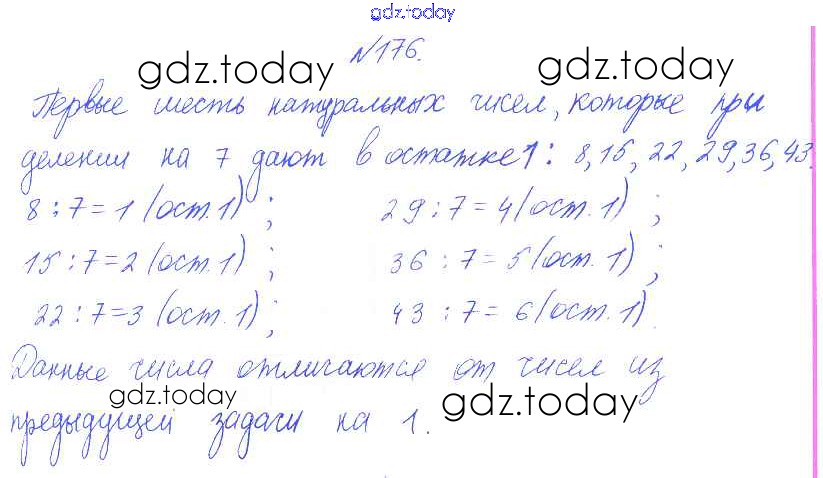 gdz.today
№176.
gdz.today gdz.today
Первые шесть натуральных чисел, которые при
делении на 7 дают в остатке 1: 8, 15, 22, 29, 36, 43.
8 : 7 = 1 (ост. 1) ; 29 : 7 = 4 (ост. 1) ;
15 : 7 = 2 (ост. 1) ; 36 : 7 = 5 (ост. 1) ;
22 : 7 = 3 (ост. 1) ; 43 : 7 = 6 (ост. 1).
Данные числа отличаются от чисел из
gdz.today gdz.today
предыдущей задачи на 1.